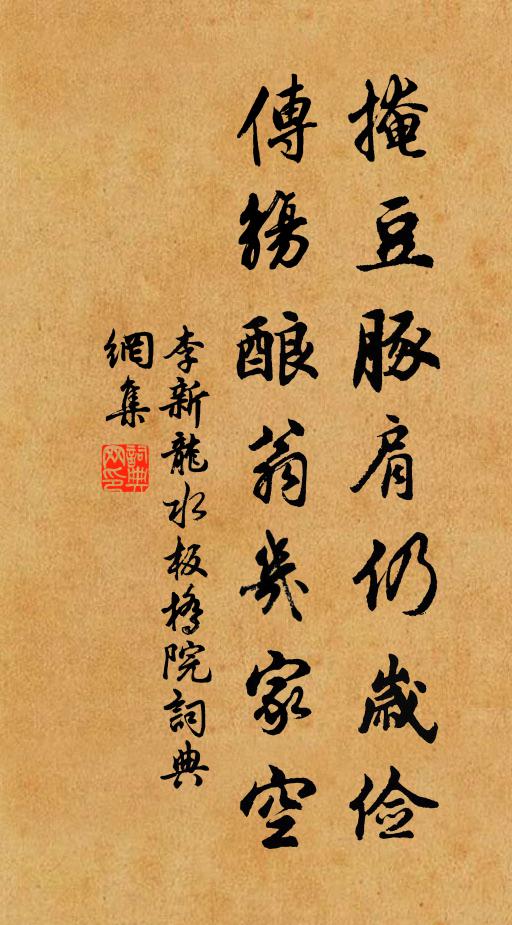 掩豆豚肩仍歲儉
傳觴酿翁幾家空
李新龍水板橋院詞典
網集
詞典
網印